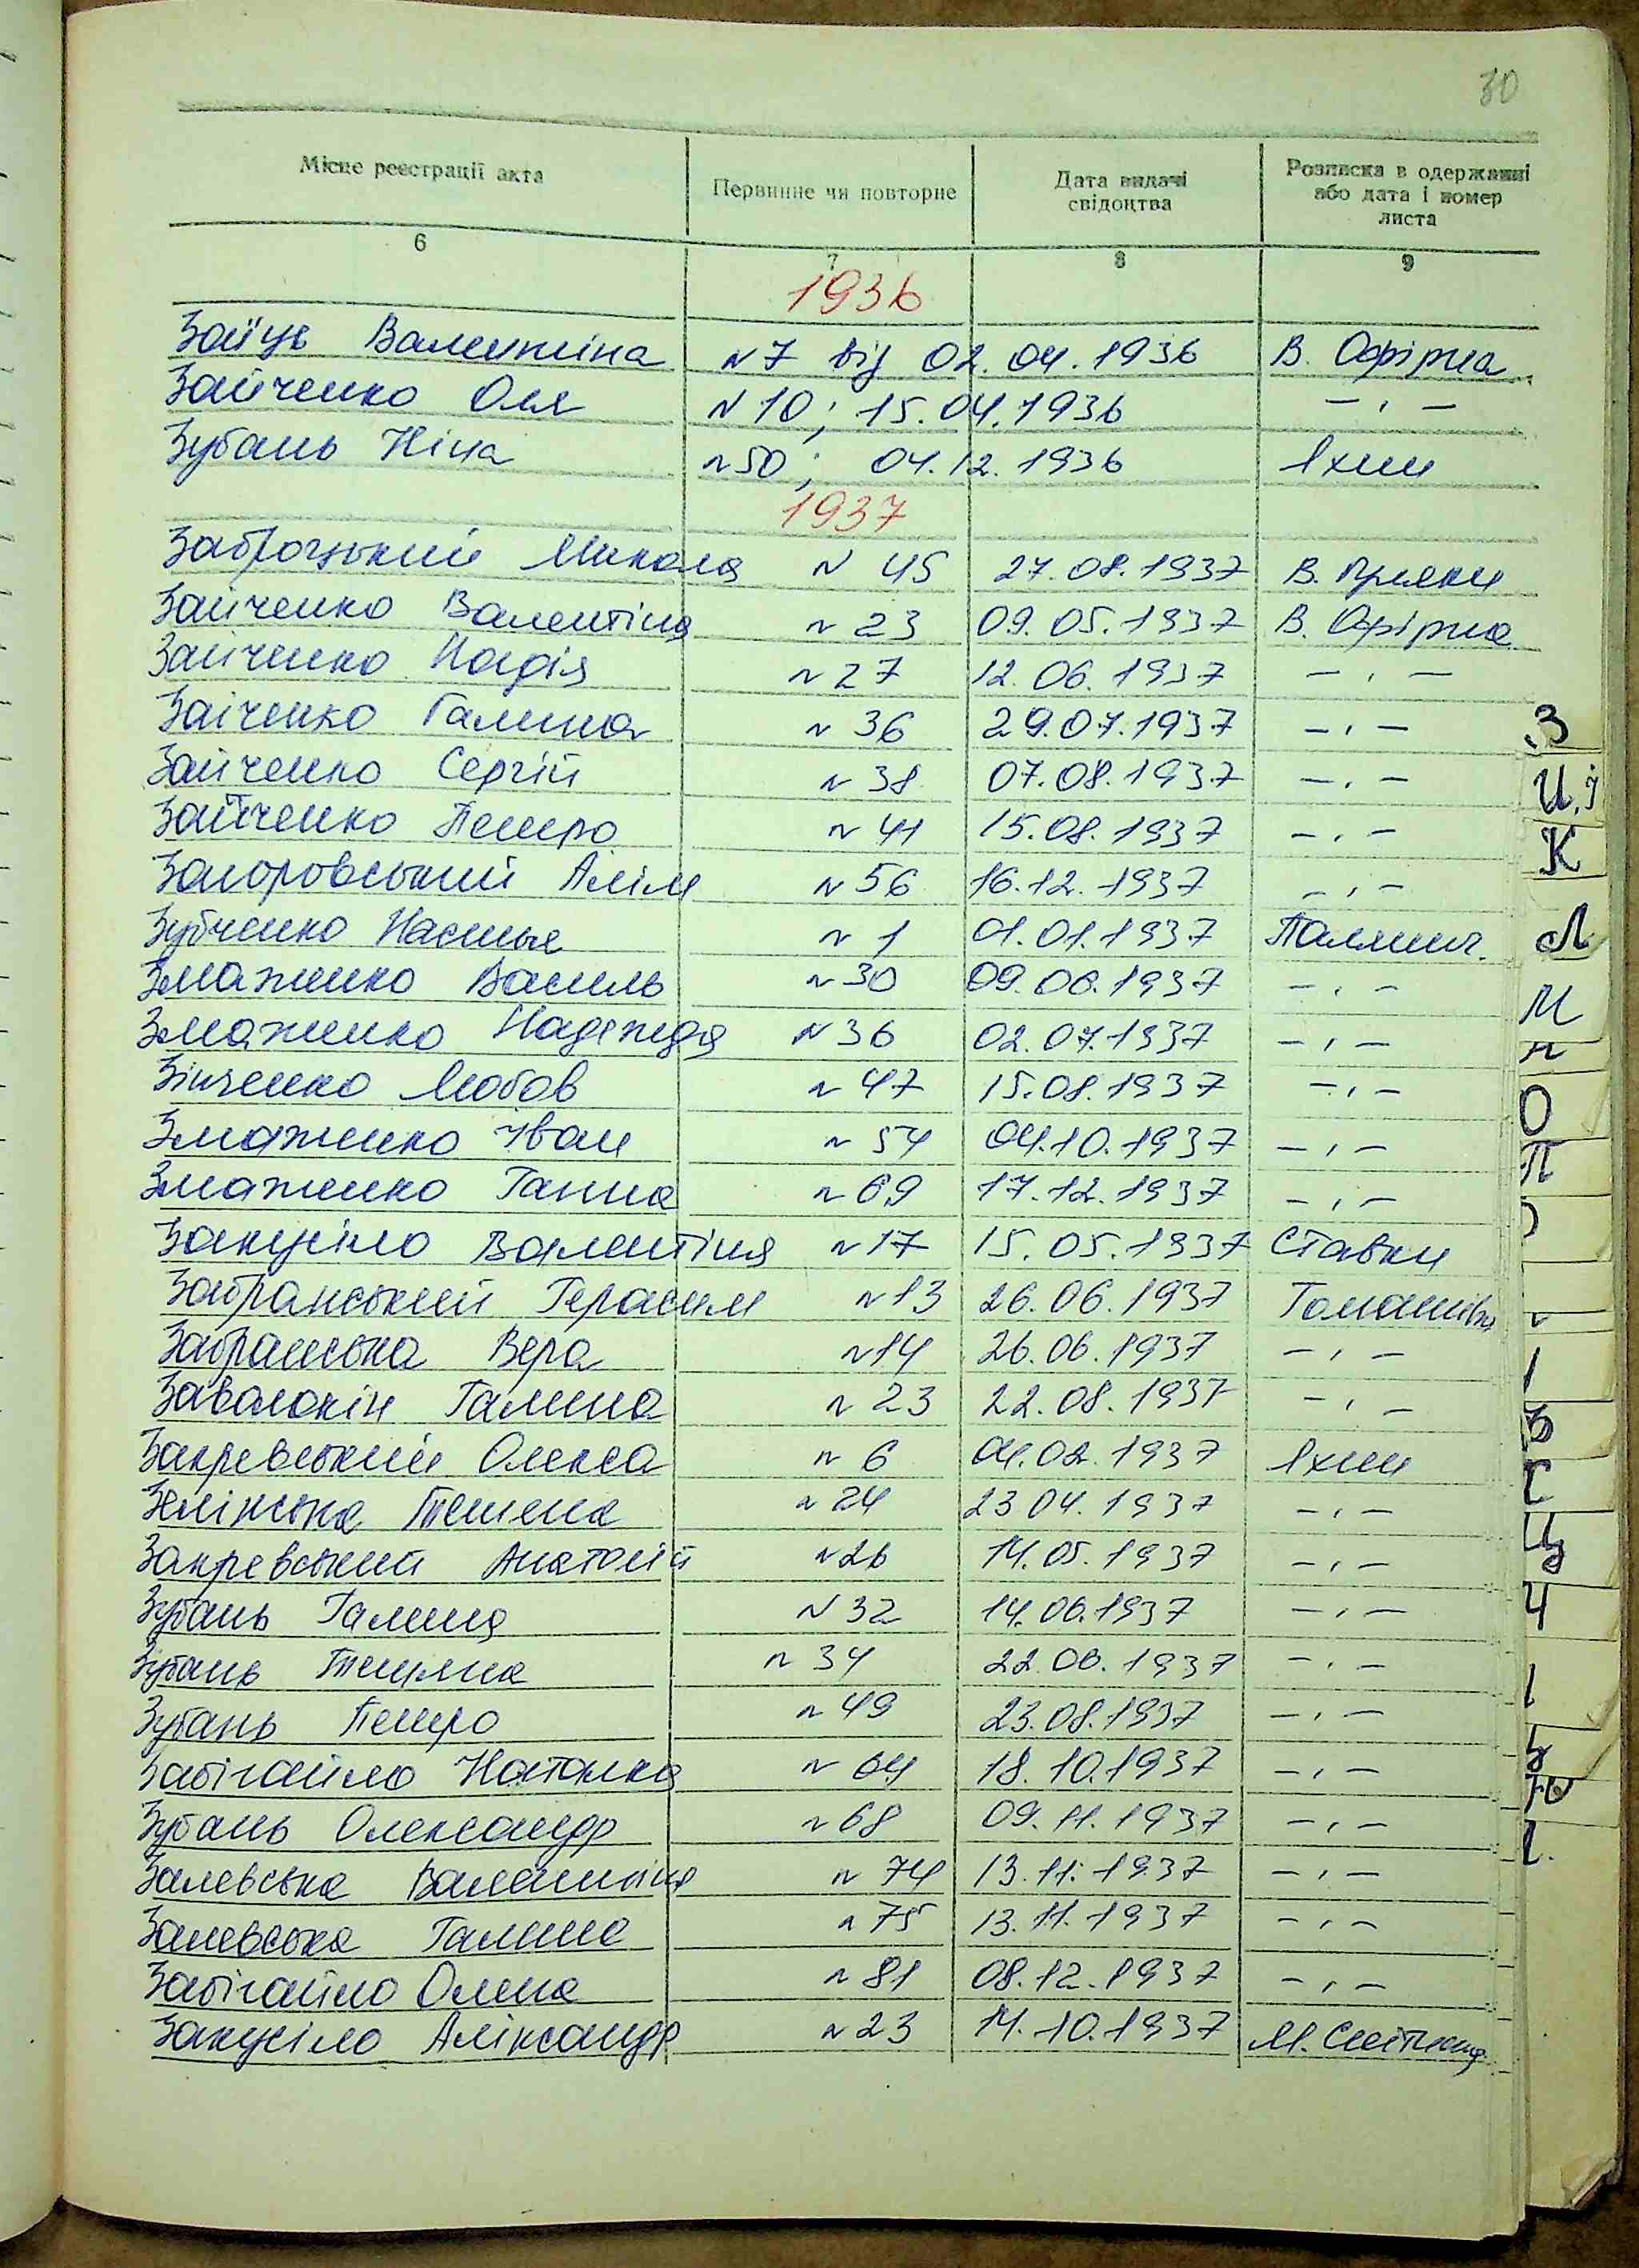 30
Місце реєстрації акта Первинне чи повторне Дата видачі свідоцтва Розписка в одержанні або дата і номер листа
6 7 8 9
1936
Заїць Валентина N 7 від 02.04.1936 В. Офірна
Зайченко Оля N 10; 15.04.1936 – „ –
Зубань Ніна N 50; 04.12.1936 Яхни
1937
Заброцький Микола N 45 27.08.1937 В. Пряжки
Зайченко Валентина N 23 09.05.1937 В. Офірна
Зайченко Надія N 27 12.06.1937 – „ –
Заіченко Галина N 36 29.07.1937 – „ –
Зайченко Сергій N 38 07.08.1937 – „ –
Зайченко Петро N 41 15.08.1937 – „ –
Загоровський Алім N 56 16.12.1937 – „ –
Зубченко Настя N 1 01.01.1937 Палянич.
Змаженко Василь N 30 09.06.1937 – „ –
Змаженко Надежда N 36 02.07.1937 – „ –
Зінченко Любов N 47 15.08.1937 – „ –
Змаженко Іван N 54 04.10.1937 – „ –
Змаженко Ганна N 69 17.12.1937 – „ –
Закусіло Валентина N 17 15.05.1937 Ставки
Забранський Герасим N 13 26.06.1937 Томашівка
Забранська Вера N 14 26.06.1937 – „ –
Заволокін Галина N 23 22.08.1937 – „ –
Закревський Олекса N 6 04.02.1937 Яхни
Зелінська Тетена N 24 23.04.1937 – „ –
Закревський Анатолій N 26 14.05.1937 – „ –
Зубань Галина N 32 14.06.1937 – „ –
Зубань Тетяна N 34 22.06.1937 – „ –
Зубань Петро N 49 23.08.1937 – „ –
Забігайло Наталка N 64 18.10.1937 – „ –
Зубань Олександр N 68 09.11.1937 – „ –
Залевська Валентина N 74 13.11.1937 – „ –
Залевська Галина N 75 13.11.1937 – „ –
Забігайло Олена N 81 08.12.1937 – „ –
Закусіло Аліксандр N 23 14.10.1937 М. Снітинка
З
И.І
К
Л
М
О
П
Ц
Ч